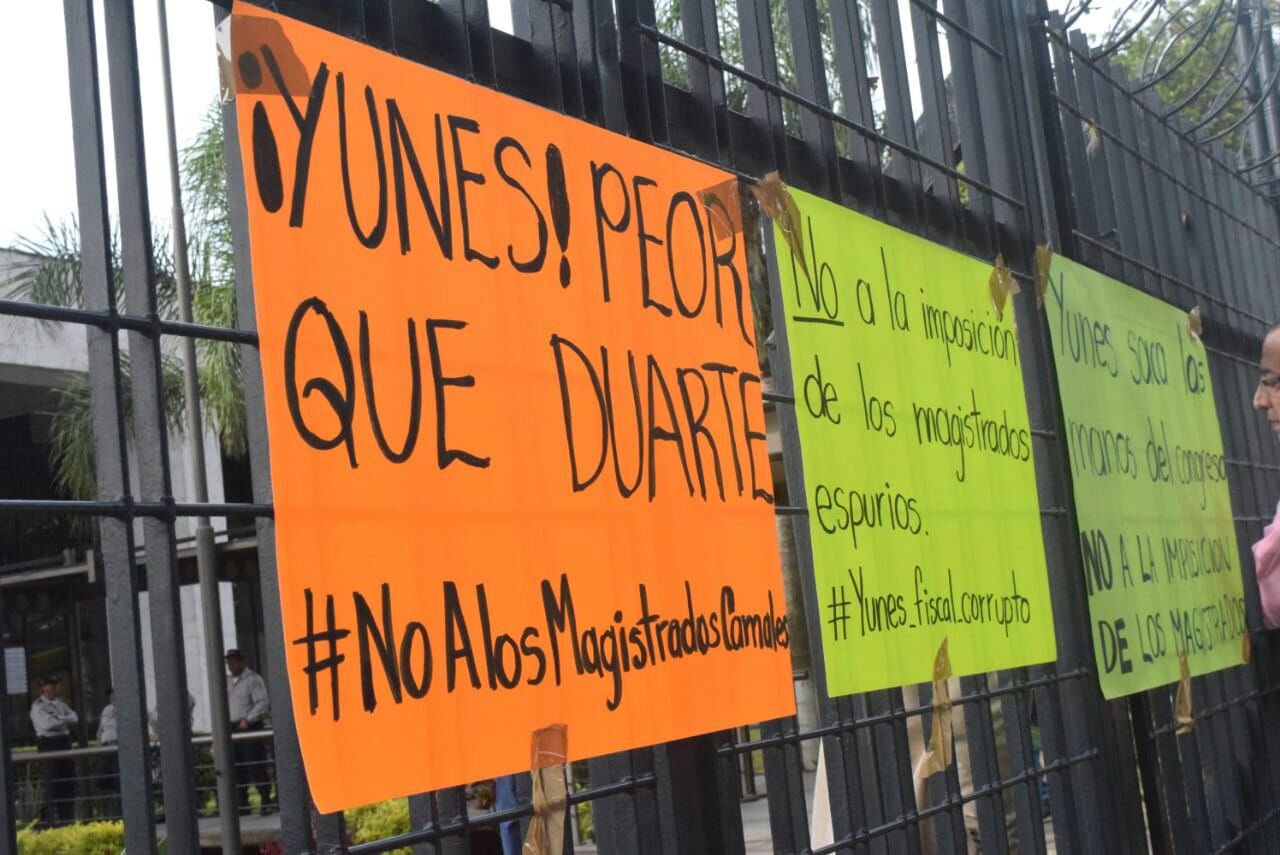 ¡YUNES! PEOR
QUE DUARTE
#NoAlosMagistradosCarnales
No a la imposición
de los magistrados
espurios.
#Yunes_fiscal_corrupto
Yunes saca las
manos del congreso
NO A LA IMPOSICION
DE LOS MAGISTRADOS